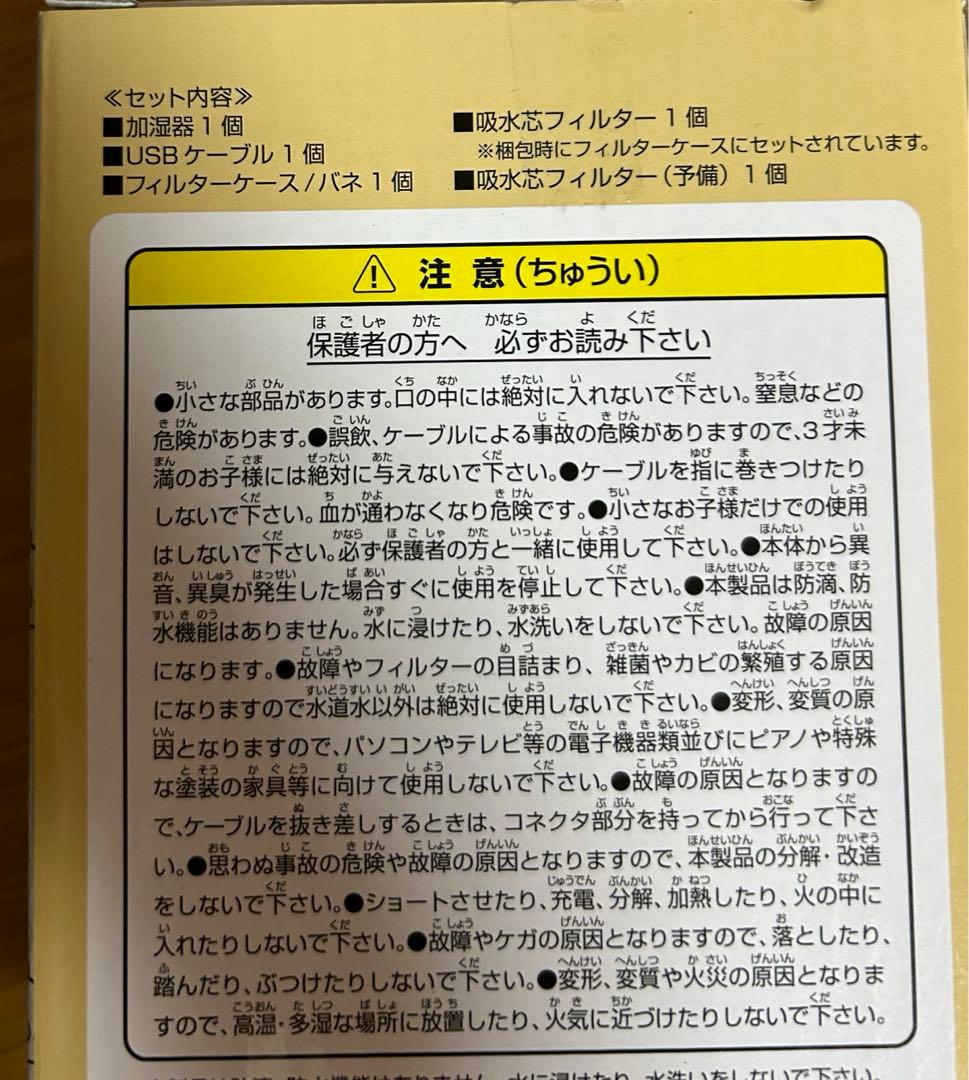 ≪セット内容≫
■加湿器1個
■USBケーブル1個
■フィルターケース/バネ1個
■吸水芯フィルター1個
※梱包時にフィルターケースにセットされています。
■吸水芯フィルター(予備)1個
注意(ちゅうい)
保護者の方へ 必ずお読み下さい
●小さな部品があります。口の中には絶対に入れないで下さい。窒息などの
危険があります。●誤飲、ケーブルによる事故の危険がありますので、3才未
満のお子様には絶対に与えないで下さい。●ケーブルを指に巻きつけたり
しないで下さい。血が通わなくなり危険です。●小さなお子様だけでの使用
はしないで下さい。必ず保護者の方と一緒に使用して下さい。●本体から異
音、異臭が発生した場合すぐに使用を停止して下さい。●本製品は防滴、防
水機能はありません。水に浸けたり、水洗いをしないで下さい。故障の原因
になります。●故障やフィルターの目詰まり、雑菌やカビの繁殖する原因
になりますので水道水以外は絶対に使用しないで下さい。●変形、変質の原
因となりますので、パソコンやテレビ等の電子機器類並びにピアノや特殊
な塗装の家具等に向けて使用しないで下さい。●故障の原因となりますの
で、ケーブルを抜き差しするときは、コネクタ部分を持ってから行って下さ
い。●思わぬ事故の危険や故障の原因となりますので、本製品の分解・改造
をしないで下さい。●ショートさせたり、充電、分解、加熱したり、火の中に
入れたりしないで下さい。●故障やケガの原因となりますので、落としたり、
踏んだり、ぶつけたりしないで下さい。●変形、変質や火災の原因となりま
すので、高温・多湿な場所に放置したり、火気に近づけたりしないで下さい。